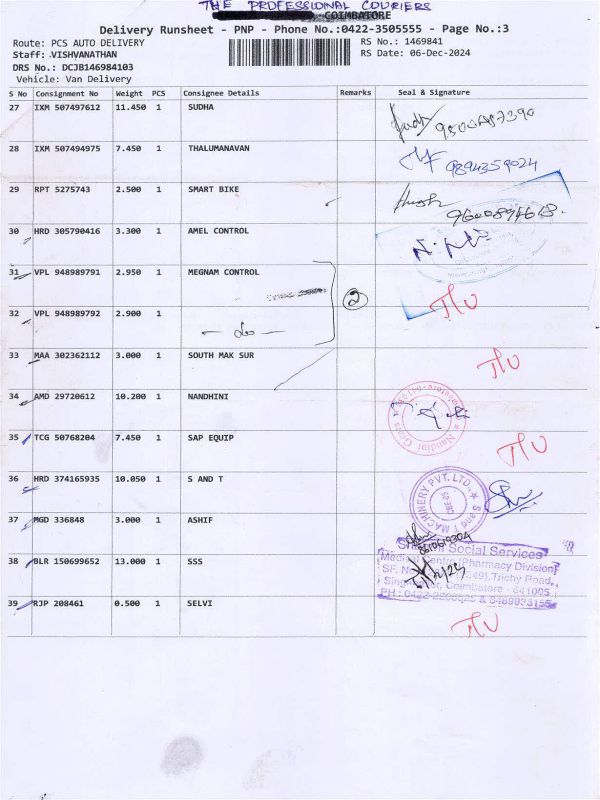 THE PROFESSIONAL COURIERS
COIMBATORE
Delivery Runsheet - PNP - Phone No.:0422-3505555 - Page No.:3
Route: PCS AUTO DELIVERY
RS No.: 1469841
Staff: .VISHVANATHAN
RS Date: 06-Dec-2024
DRS No.: DCJB146984103
Vehicle: Van Delivery
S No Consignment No Weight PCS Consignee Details Remarks Seal & Signature
27 IXM 507497612 11.450 1 SUDHA
28 IXM 507494975 7.450 1 THALUMANAVAN
9894359024
29 RPT 5275743 2.500 1 SMART BIKE
30 HRD 305790416 3.300 1 AMEL CONTROL
31 VPL 948989791 2.950 1 MEGNAM CONTROL
2
32 VPL 948989792 2.900 1
— do —
33 MAA 302362112 3.000 1 SOUTH MAK SUR
34 AMD 29720612 10.200 1 NANDHINI
Nandini Gears
35 TCG 50768204 7.450 1 SAP EQUIP
36 HRD 374165935 10.050 1 S AND T
S and T MACHINERY PVT. LTD.,
CBE-05
37 MGD 336848 3.000 1 ASHIF
38 BLR 150699652 13.000 1 SSS
Social Services
Medical Center (Pharmacy Division)
Trichy Road,
Coimbatore - 641005
39 RJP 208461 0.500 1 SELVI